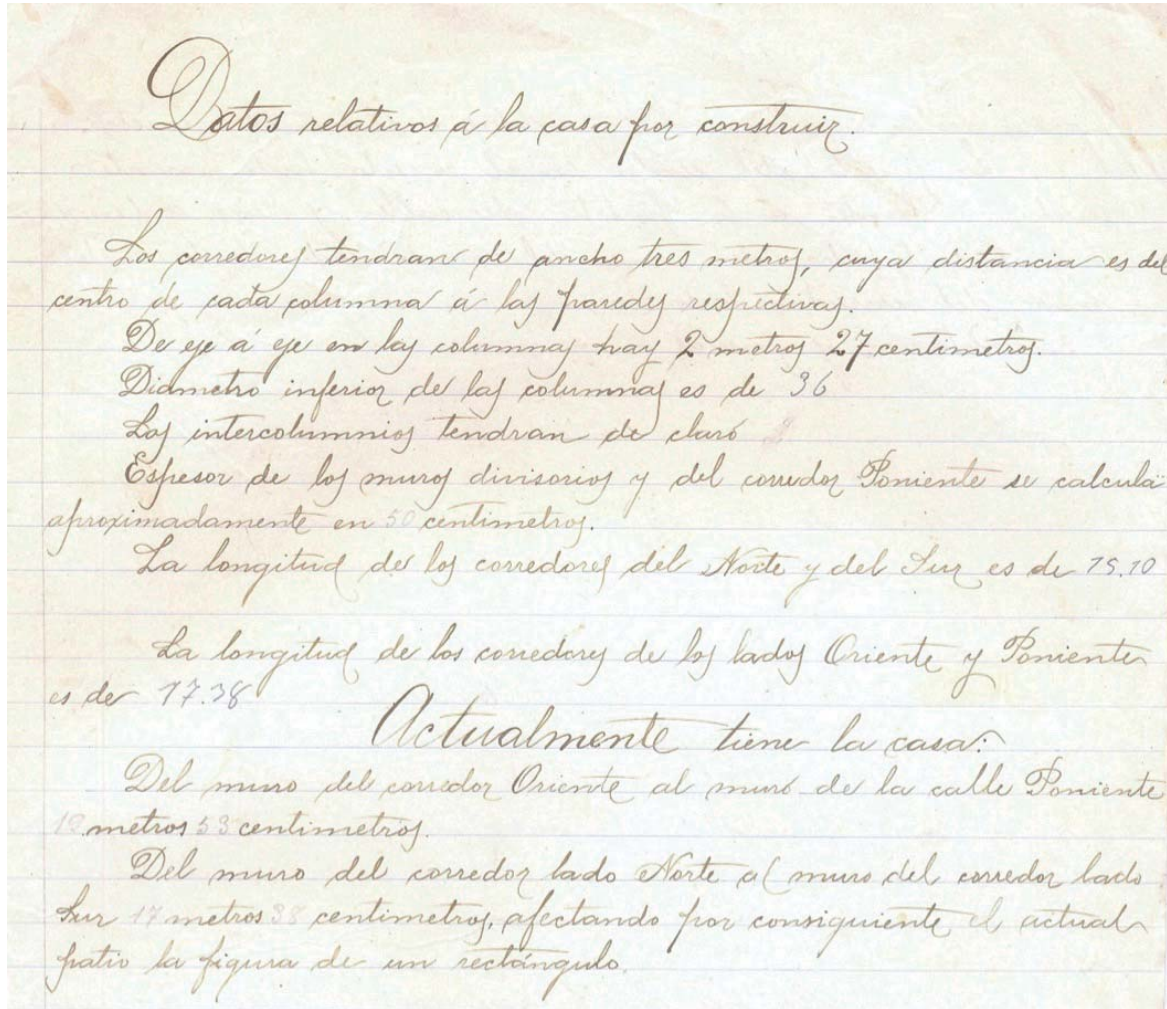 Datos relativos á la casa por construir.
Los corredores tendran de ancho tres metros, cuya distancia es del
centro de cada columna á las paredes respectivas.
De eje á eje en las columnas hay 2 metros 27 centimetros.
Diametro inferior de las columnas es de 36
Los intercolumnios tendran de claro
Espesor de los muros divisorios y del corredor Poniente se calcula
aproximadamente en 50 centimetros.
La longitud de los corredores del Norte y del Sur es de
La longitud de los corredores de los lados Oriente y Poniente
es de 17.38
Actualmente tiene la casa:
Del muro del corredor Oriente al muro de la calle Poniente
metros 53 centimetros.
Del muro del corredor lado Norte al muro del corredor lado
Sur 17 metros 38 centimetros, afectando por consiguiente el actual
patio la figura de un rectángulo.